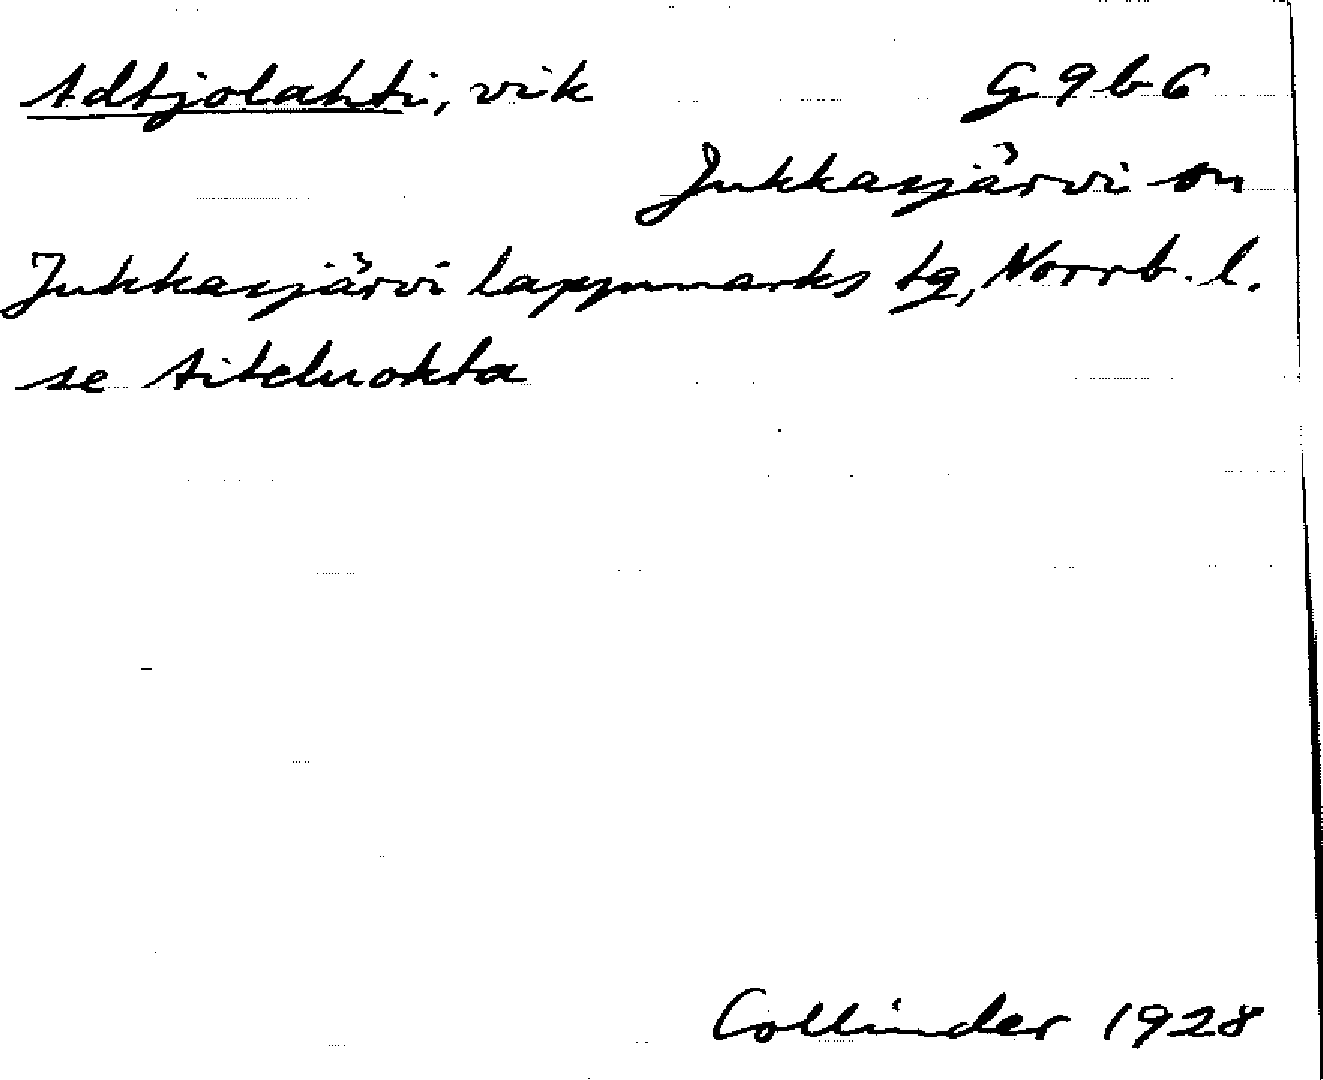 Adtjolahti, vik G 9 b 6
Jukkasjärvi sn
Jukkasjärvi lappmarks tg, Norrb. l.
se
Collinder 1928